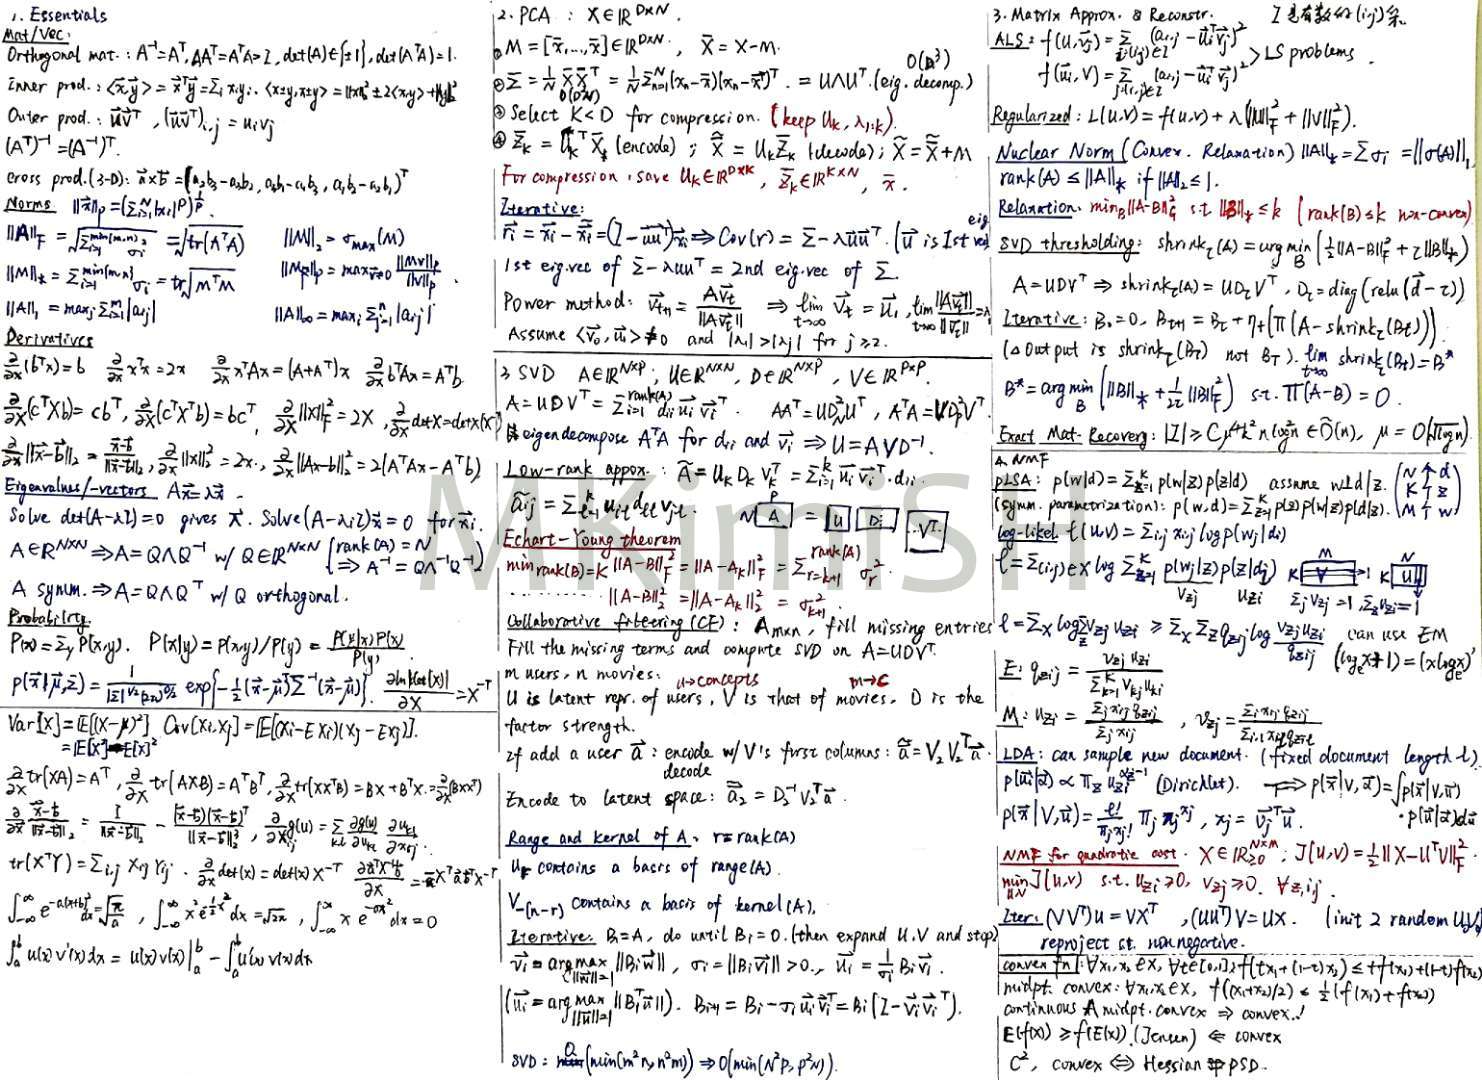 1. Essentials
Mat/Vec:
Orthogonal mat.: A⁻¹=Aᵀ, AAᵀ=AᵀA=I, det(A)∈{±1}, det(AᵀA)=1.
Inner prod.: <x⃗,y⃗> = x⃗ᵀy⃗ = Σᵢ xᵢyᵢ. <x±y, x±y> = ‖x‖² ± 2<x,y> + ‖y‖²
Outer prod.: u⃗v⃗ᵀ, (u⃗v⃗ᵀ)ᵢ,ⱼ = uᵢvⱼ
(Aᵀ)⁻¹ = (A⁻¹)ᵀ.
cross prod.(3-D): a⃗×b⃗ = (a₂b₃-a₃b₂, a₃b₁-a₁b₃, a₁b₂-a₂b₁)ᵀ
Norms ‖x⃗‖p = (Σᵢ₌₁ᴺ|xᵢ|ᵖ)^(1/p)
‖A‖F = √(Σᵢ₌₁^min(m,n) σᵢ²) = √tr(AᵀA) ‖M‖₂ = σmax(M)
‖M‖* = Σᵢ₌₁^min{m,n} σᵢ = tr√(MᵀM) ‖M‖p = max v≠0 ‖Mv‖p/‖v‖p
‖A‖₁ = maxⱼ Σᵢ₌₁ᵐ |aᵢⱼ| ‖A‖∞ = maxᵢ Σⱼ₌₁ⁿ |aᵢⱼ|
Derivatives
∂/∂x (bᵀx) = b ∂/∂x xᵀx = 2x ∂/∂x xᵀAx = (A+Aᵀ)x ∂/∂x bᵀAx = Aᵀb
∂/∂X (cᵀXb) = cbᵀ, ∂/∂X (cᵀXᵀb) = bcᵀ, ∂/∂X ‖X‖F² = 2X
∂/∂x ‖x⃗-b⃗‖₂ = (x⃗-b⃗)/‖x⃗-b⃗‖₂, ∂/∂x ‖x‖₂² = 2x, ∂/∂x ‖Ax-b‖₂² = 2(AᵀAx - Aᵀb)
Eigenvalues/-vectors Ax⃗ = λx⃗
Solve det(A-λI)=0 gives λ⃗. Solve (A-λᵢI)x⃗ = 0 for x⃗ᵢ.
A∈ℝᴺˣᴺ ⇒ A=QΛQ⁻¹ w/ Q∈ℝᴺˣᴺ { rank(A) = N ⇒ A⁻¹ = QΛ⁻¹Q⁻¹
A symm. ⇒ A=QΛQᵀ w/ Q orthogonal.
Probability
P(x) = Σy P(x,y). P(x|y) = P(x,y)/P(y) = P(y|x)P(x)/P(y)
p(x⃗|μ⃗,Σ) = 1/(|Σ|^(1/2)(2π)^(D/2)) exp{-½(x⃗-μ⃗)ᵀΣ⁻¹(x⃗-μ⃗)}. ∂ln|det(X)|/∂X = X⁻ᵀ
Var[X] = E[(X-μ)²] Cov[Xᵢ,Xⱼ] = E[(Xᵢ-EXᵢ)(Xⱼ-EXⱼ)].
= E[X²]-E[X]²
∂/∂X tr(XA) = Aᵀ, ∂/∂X tr(AXB) = AᵀBᵀ, ∂/∂X tr(XXᵀB) = BX+BᵀX = ∂/∂X (BXXᵀ)
∂/∂x⃗ (x⃗-b⃗)/‖x⃗-b⃗‖₂ = I/‖x⃗-b⃗‖₂ - (x⃗-b⃗)(x⃗-b⃗)ᵀ/‖x⃗-b⃗‖₂³, ∂/∂Xᵢⱼ g(U) = Σk,l ∂g(U)/∂uₖₗ ∂uₖₗ/∂xᵢⱼ.
tr(XᵀY) = Σᵢ,ⱼ Xᵢⱼ Yᵢⱼ. ∂/∂X det(X) = det(X) X⁻ᵀ
∫₋∞^∞ e^(-a(x+b)²) dx = √(π/a), ∫₋∞^∞ x² e^(-½x²) dx = √2π, ∫₋∞^∞ x e^(-ax²) dx = 0
∫ₐᵇ u(x)v'(x)dx = u(x)v(x)|ₐᵇ - ∫ₐᵇ u'(x)v(x)dx
2. PCA : X∈ℝᴰˣᴺ.
① M = [x̄,...,x̄] ∈ℝᴰˣᴺ, X̄ = X-M.
② Σ = 1/N X̄X̄ᵀ = 1/N Σₙ₌₁ᴺ (xₙ-x̄)(xₙ-x̄)ᵀ. = UΛUᵀ. (eig. decomp.) O(D³)
O(D²N)
③ Select K<D for compression. (keep Uₖ, λ₁:ₖ).
④ Z̄ₖ = Uₖᵀ X̄ (encode); X̄̃ = UₖZ̄ₖ (decode); X̃ = X̄̃+M
For compression, save Uₖ∈ℝᴰˣᴷ, Z̄ₖ∈ℝᴷˣᴺ, x̄.
Iterative:
r⃗ᵢ = x⃗ᵢ - x̃ᵢ = (I-u⃗u⃗ᵀ)x⃗ᵢ ⇒ Cov(r) = Σ-λu⃗u⃗ᵀ. (u⃗ is 1st eig vec)
1st eig.vec of Σ-λuuᵀ = 2nd eig.vec of Σ.
Power method: v⃗ₜ₊₁ = Av⃗ₜ/‖Av⃗ₜ‖ ⇒ lim t→∞ v⃗ₜ = u⃗₁, lim t→∞ ‖Av⃗ₜ‖/‖v⃗ₜ‖ = λ₁
Assume <v⃗₀,u⃗₁> ≠0 and |λ₁|>|λⱼ| for j≥2.
3. SVD A∈ℝᴺˣᴾ; U∈ℝᴺˣᴺ, D∈ℝᴺˣᴾ, V∈ℝᴾˣᴾ.
A = UDVᵀ = Σᵢ₌₁^rank(A) dᵢᵢ u⃗ᵢ v⃗ᵢᵀ. AAᵀ = UD_N²Uᵀ, AᵀA = VD_P²Vᵀ.
eigendecompose AᵀA for dᵢᵢ and v⃗ᵢ ⇒ U = AVD⁻¹.
Low-rank appox.: Ã = Uₖ Dₖ Vₖᵀ = Σᵢ₌₁ᵏ u⃗ᵢ v⃗ᵢᵀ. dᵢᵢ.
ãᵢⱼ = Σₗ₌₁ᵏ uᵢₗ dₗₗ vⱼₗ. N A P = U Dᵢ Vᵀ
Echart-Young theorem
min rank(B)=K ‖A-B‖F² = ‖A-Aₖ‖F² = Σᵣ₌ₖ₊₁^rank(A) σᵣ².
.......... ‖A-B‖₂² = ‖A-Aₖ‖₂² = σₖ₊₁².
Collaborative filtering (CF): Aₘₓₙ, fill missing entries
Fill the missing terms and compute SVD on A=UDVᵀ.
m users, n movies: u→concepts m→c
U is latent repr. of users, V is that of movies. D is the
factor strength.
If add a user a⃗: encode w/ V's first columns: ã = V₂V₂ᵀa⃗.
decode
Encode to latent space: ã₂ = D₂⁻¹V₂ᵀa⃗.
Range and kernel of A. r=rank(A)
Uᵣ contains a basis of range(A).
V₋(n-r) contains a basis of kernel(A).
Iterative. B₁=A, do until Bᵢ=0. (then expand U,V and stop)
v⃗ᵢ = argmax ‖w⃗‖=1 ‖Bᵢw⃗‖, σᵢ = ‖Bᵢv⃗ᵢ‖ >0., u⃗ᵢ = 1/σᵢ Bᵢv⃗ᵢ.
(u⃗ᵢ = argmax ‖u⃗‖=1 ‖Bᵢᵀu⃗‖). Bᵢ₊₁ = Bᵢ-σᵢu⃗ᵢv⃗ᵢᵀ = Bᵢ(I-v⃗ᵢv⃗ᵢᵀ).
SVD: O(min(m²n, n²m)) ⇒ O(min(N²P, P²N)).
3. Matrix Approx. & Reconstr. I 是有数的(i,j)
ALS: f(U,v⃗ⱼ) = Σ i:(i,j)∈I (aᵢ,ⱼ - u⃗ᵢᵀv⃗ⱼ)²
f(u⃗ᵢ,V) = Σ j:(i,j)∈I (aᵢ,ⱼ - u⃗ᵢᵀv⃗ⱼ)² > LS problems.
Regularized: L(U,V) = f(U,V) + λ(‖U‖F² + ‖V‖F²).
Nuclear Norm (Convex. Relaxation) ‖A‖* = Σσᵢ = ‖σ(A)‖₁
rank(A) ≤ ‖A‖* if ‖A‖₂≤1.
Relaxation. min_B ‖A-B‖G² s.t. ‖B‖*≤k (rank(B)≤k non-convex)
SVD thresholding: shrinkτ(A) = argmin B (½‖A-B‖F² + τ‖B‖*)
A=UDVᵀ ⇒ shrinkτ(A) = UDτVᵀ, Dτ = diag(relu(d⃗-τ))
Iterative: B₀=0, Bₜ₊₁ = Bₜ + ηₜ(Π(A-shrinkτ(Bₜ))).
(△ Output is shrinkτ(B_T) not B_T). lim t→∞ shrinkτ(Bₜ) = B*
B* = argmin B (‖B‖* + 1/2τ ‖B‖F²) s.t. Π(A-B) = 0.
Exact Mat. Recovery:
4. NMF
pLSA: p(w|d) = Σz₌₁ᴷ p(w|z)p(z|d) assume w⊥d|z. (N↑d K↑z M↑w)
(symm. parametrization): p(w,d) = Σz₌₁ᴷ p(z)p(w|z)p(d|z).
log-likel. ℓ(U,V) = Σᵢ,ⱼ xᵢⱼ log p(wⱼ|dᵢ)
ℓ = Σ(i,j)∈X log Σz₌₁ᴷ p(wⱼ|z) p(z|dᵢ) K V M K U N
vzj uzi Σⱼ vzj = 1, Σz uzi = 1
ℓ = Σx log Σz vzj uzi ≥ Σx Σz qzij log vzj uzi/qzij can use EM
(log x+1) = (x log x)'
E: qzij = vzj uzi/Σₖ₌₁ᴷ vkj uki
M: uzi = Σⱼ xᵢⱼ qzij/Σⱼ xᵢⱼ, vzj = Σᵢ xᵢⱼ qzij/Σᵢ,ₗ xᵢₗ qzil
LDA: can sample new document. (fixed document length ℓ).
p(u⃗ᵢ|α⃗) ∝ Πz uzi^(αz-1) (Dirichlet). ⇒ p(x⃗|V,α⃗) = ∫p(x⃗|V,u⃗)
p(x⃗|V,u⃗) = ℓ!/Πⱼxⱼ! Πⱼ πⱼ^xⱼ, πⱼ = v⃗ⱼᵀu⃗. · p(u⃗|α⃗)du⃗
NMF for quadratic cost. X∈ℝ≥0ᴺˣᴹ; J(U,V) = ½‖X-UᵀV‖F².
min U,V J(U,V) s.t. uzi≥0, vzj≥0. ∀z,i,j.
Iter: (VVᵀ)U = VXᵀ, (UUᵀ)V=UX. (init 2 random U,V)
reproject s.t. nonnegative.
convex fn: ∀x₁,x₂∈X, ∀t∈[0,1]: f(tx₁+(1-t)x₂) ≤ tf(x₁)+(1-t)f(x₂)
midpt. convex: ∀x₁,x₂∈X, f((x₁+x₂)/2) ≤ ½(f(x₁)+f(x₂))
continuous ∧ midpt. convex ⇒ convex.!
E(f(x)) ≥ f(E(x)). (Jensen) ⇐ convex
C², convex ⇔ Hessian PSD.
MKimiSH